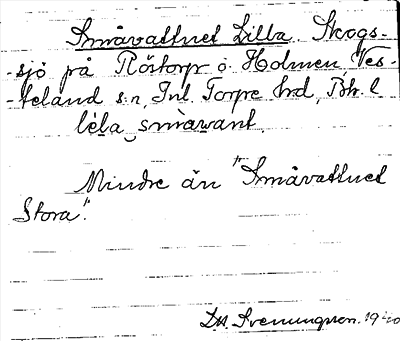 Småvattnet Lilla. Skogs-
-sjö på Röstorp o. Holmen, Ves-
-teland s:n, Inl. Torpe hd, Bh. l
lèla smàwant.
Mindre än "Småvattnet
Stora".
D. Svenungsson. 1940